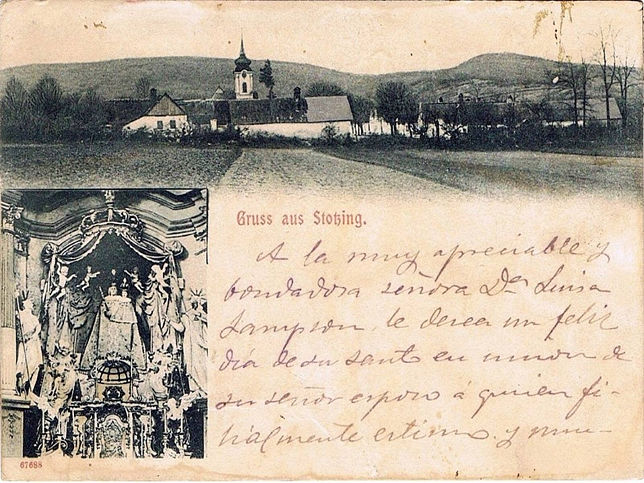 Gruss aus Stotzing.
A la muy apreciable y
bondadosa señora Dª Luisa
Sampson, le desea un feliz
dia de su santo en union de
su señor esposo á quien fi-
lialmente estimo y mu-
67688